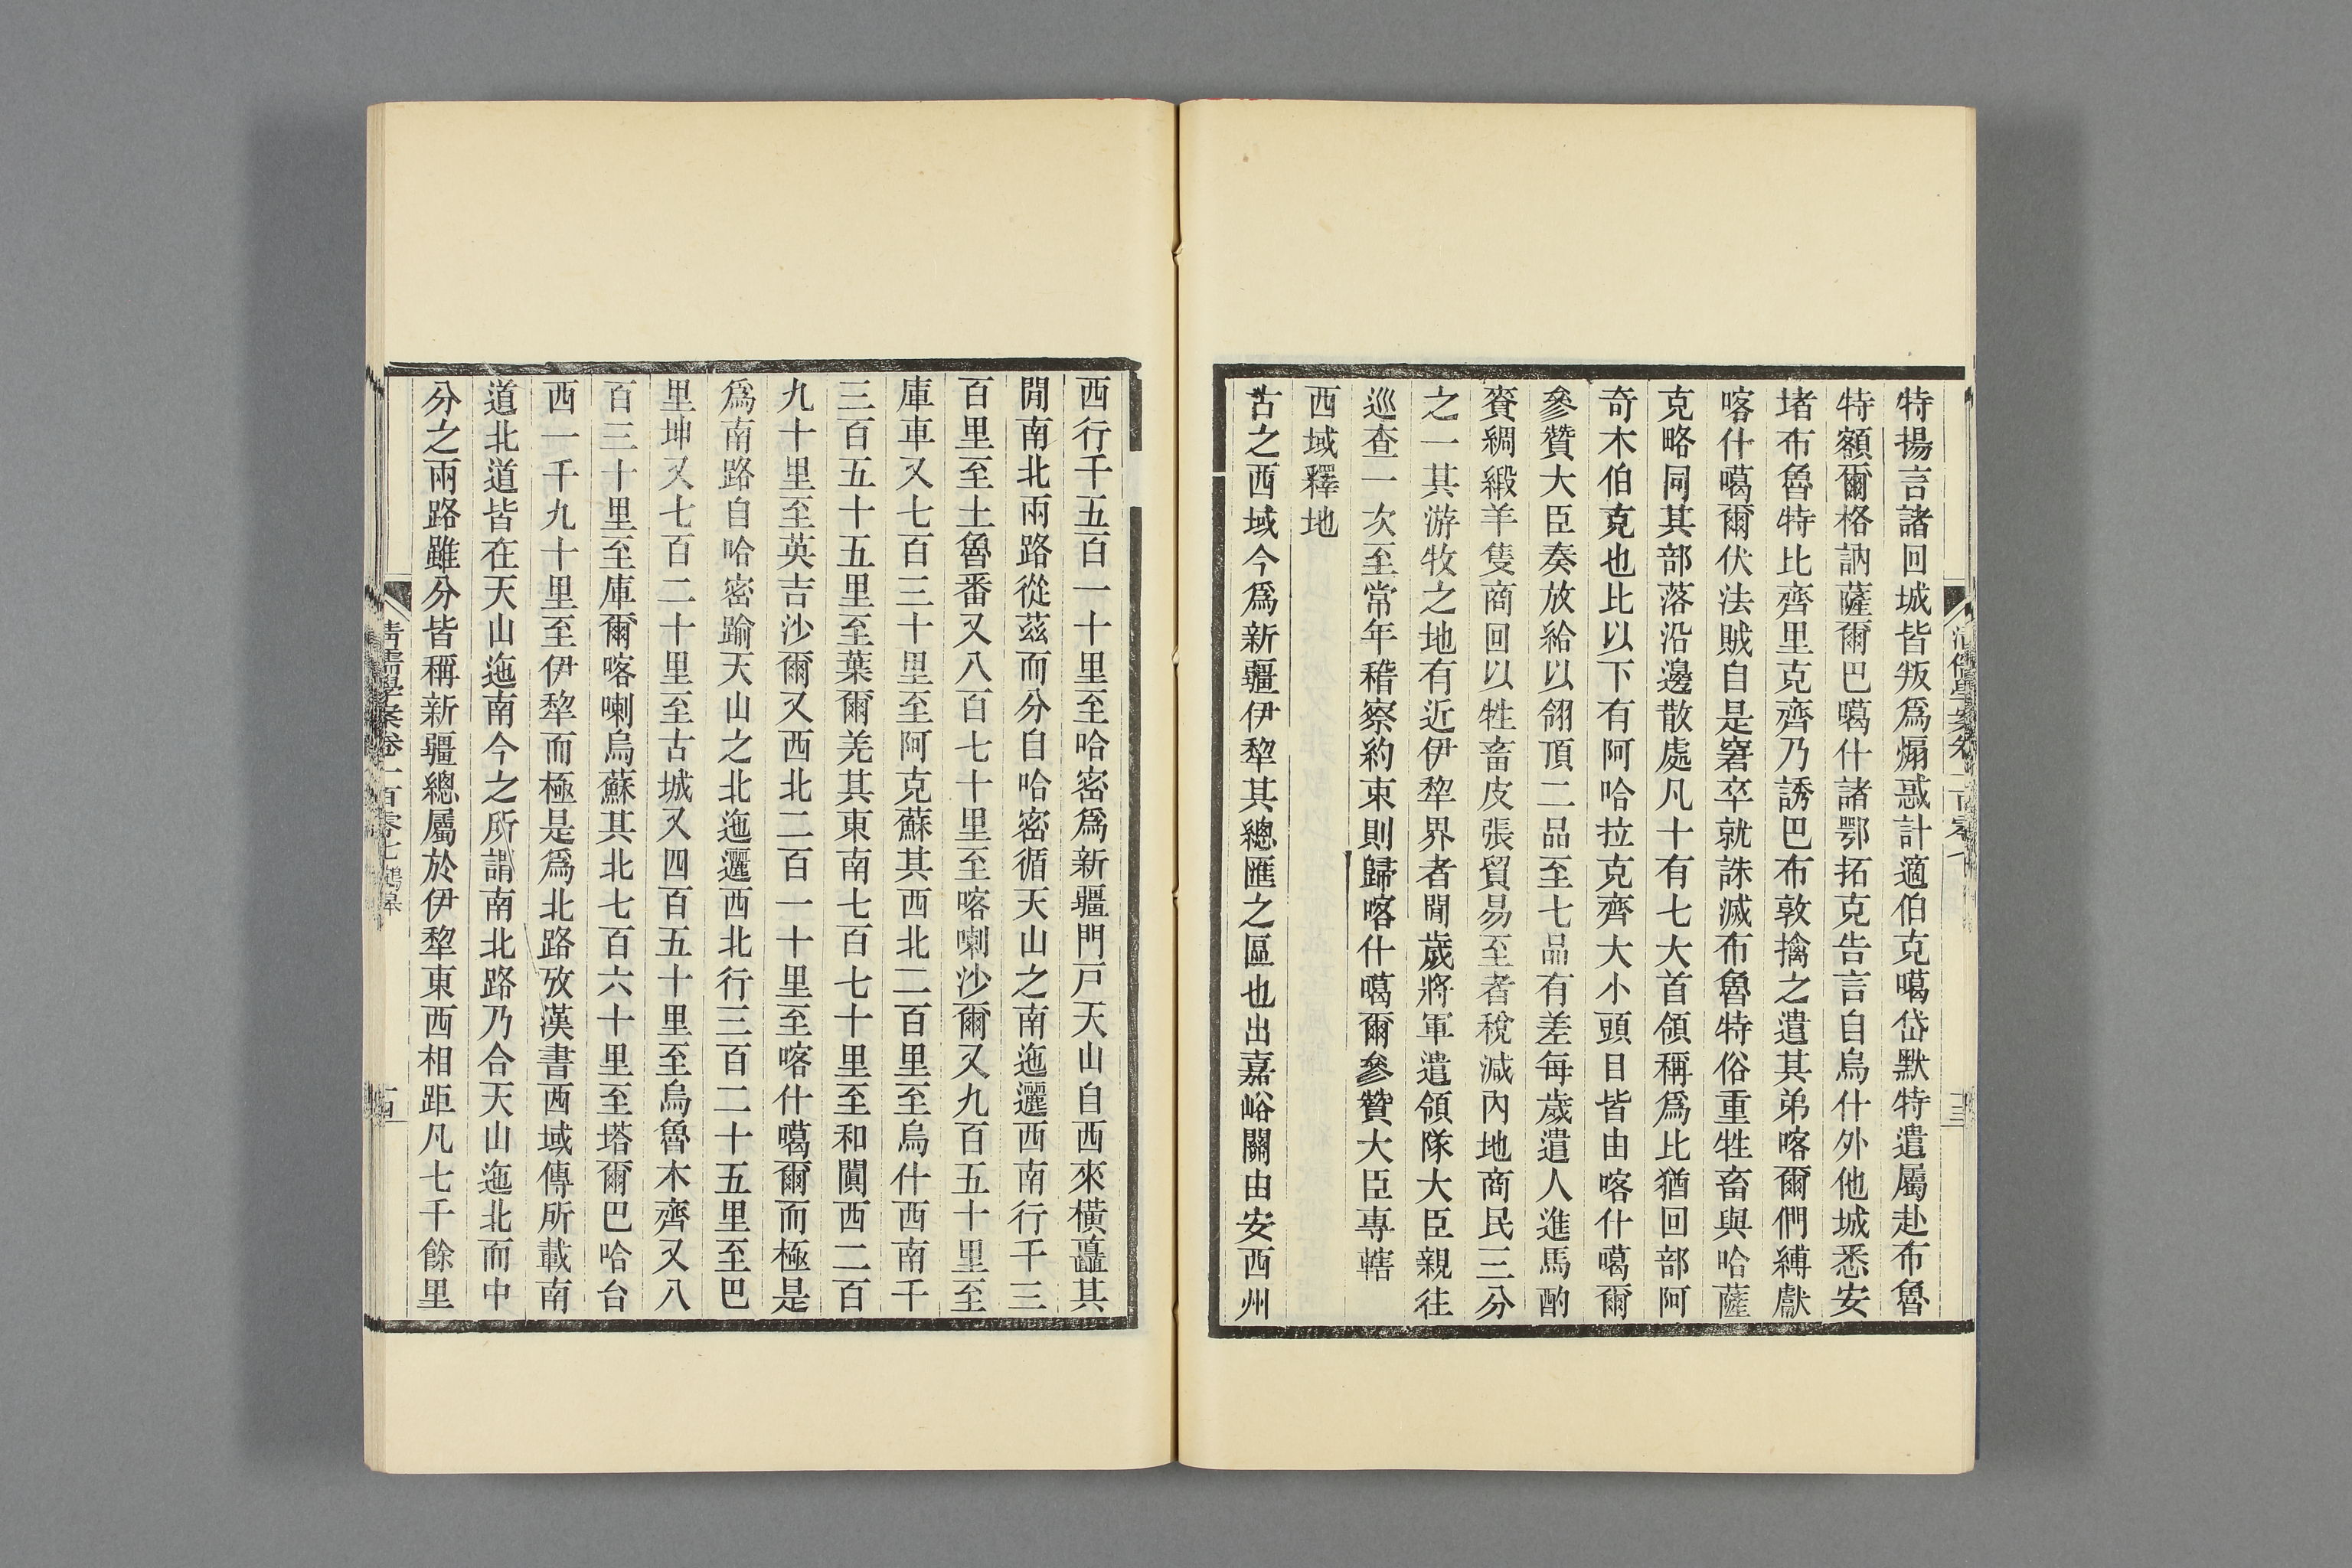 特揚言諸回城皆叛爲煽惑計適伯克噶岱默特遣屬赴布魯
特額爾格訥薩爾巴噶什諸鄂拓克告言自烏什外他城悉安
堵布魯特比齊里克齊乃誘巴布敦擒之遣其弟喀爾們縛獻
喀什噶爾伏法賊自是窘卒就誅滅布魯特俗重牲畜與哈薩
克略同其部落沿邊散處凡十有七大首領稱爲比猶回部阿
奇木伯克也比以下有阿哈拉克齊大小頭目皆由喀什噶爾
參贊大臣奏放給以翎頂二品至七品有差每歲遣人進馬酌
賚綢緞羊隻商回以牲畜皮張貿易至者稅減內地商民三分
之一其游牧之地有近伊犂界者閒歲將軍遣領隊大臣親往
巡查一次至常年稽察約束則歸喀什噶爾參贊大臣專轄
西域釋地
古之西域今爲新疆伊犂其總匯之區也出嘉峪關由安西州
西行千五百一十里至哈密爲新疆門戶天山自西來橫矗其
閒南北兩路從茲而分自哈密循天山之南迤邐西南行千三
百里至土魯番又八百七十里至喀喇沙爾又九百五十里至
庫車又七百三十里至阿克蘇其西北二百里至烏什西南千
三百五十五里至葉爾羌其東南七百七十里至和闐西二百
九十里至英吉沙爾又西北二百一十里至喀什噶爾而極是
爲南路自哈密踰天山之北迤邐西北行三百二十五里至巴
里坤又七百二十里至古城又四百五十里至烏魯木齊又八
百三十里至庫爾喀喇烏蘇其北七百六十里至塔爾巴哈台
西一千九十里至伊犂而極是爲北路攷漢書西域傳所載南
道北道皆在天山迤南今之所謂南北路乃合天山迤北而中
分之兩路雖分皆稱新疆總屬於伊犂東西相距凡七千餘里
清儒學案卷一百零七 鶴皋